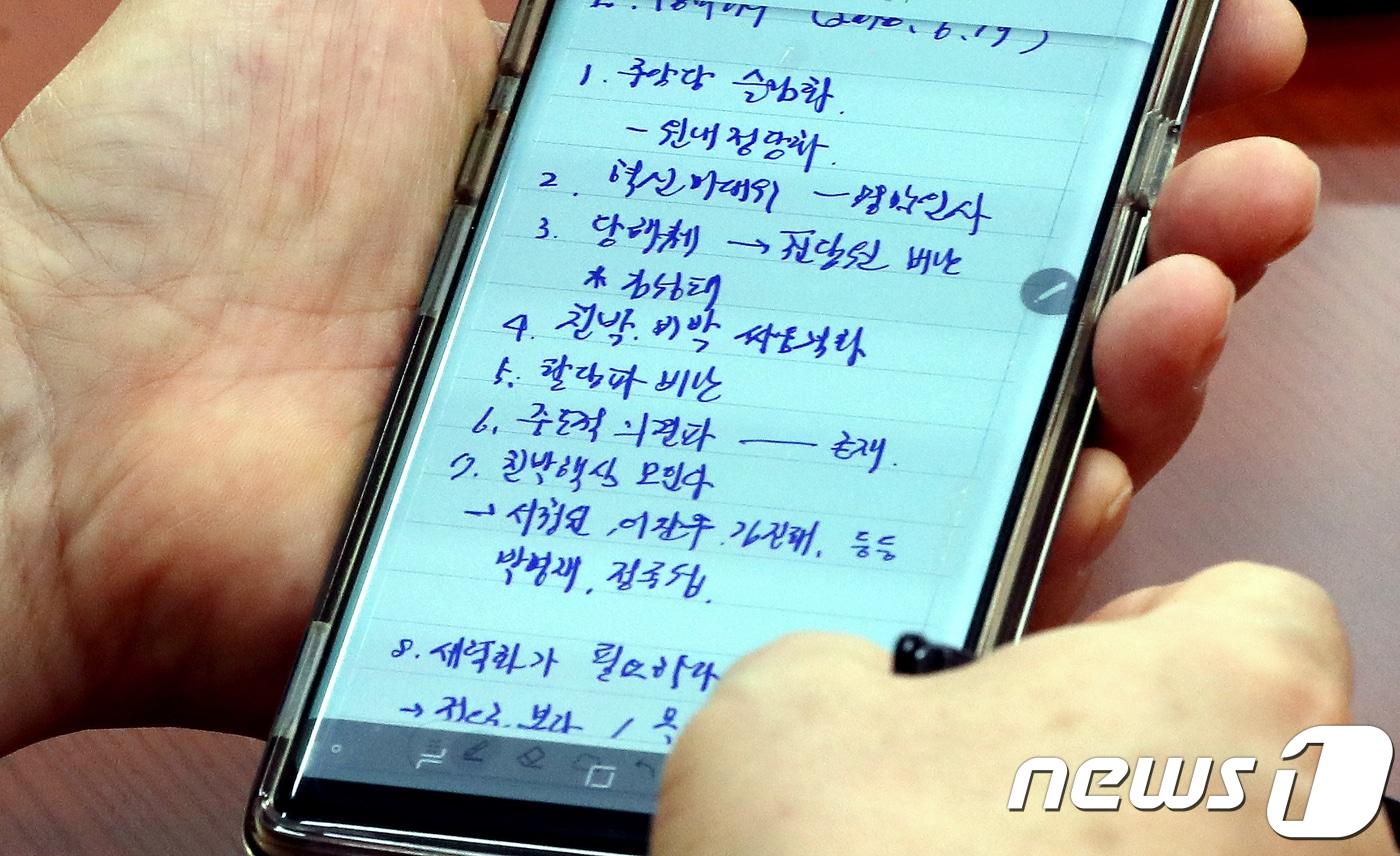 (2018. 6. 19)
1. 중앙당 슬림화.
- 원내정당화.
2. 혁신비대위 -
3. 당 해체 → 전당원 비난
* 김성태
4. 친박. 비박 싸움격화
5. 탈당파 비난
6. 중도적 의견파 — 존재.
7. 친박핵심 모인다
→ 서청원, 이장우, 김진태, 등등
박명재, 정종섭.
8. 세력화가 필요하다
→
news1